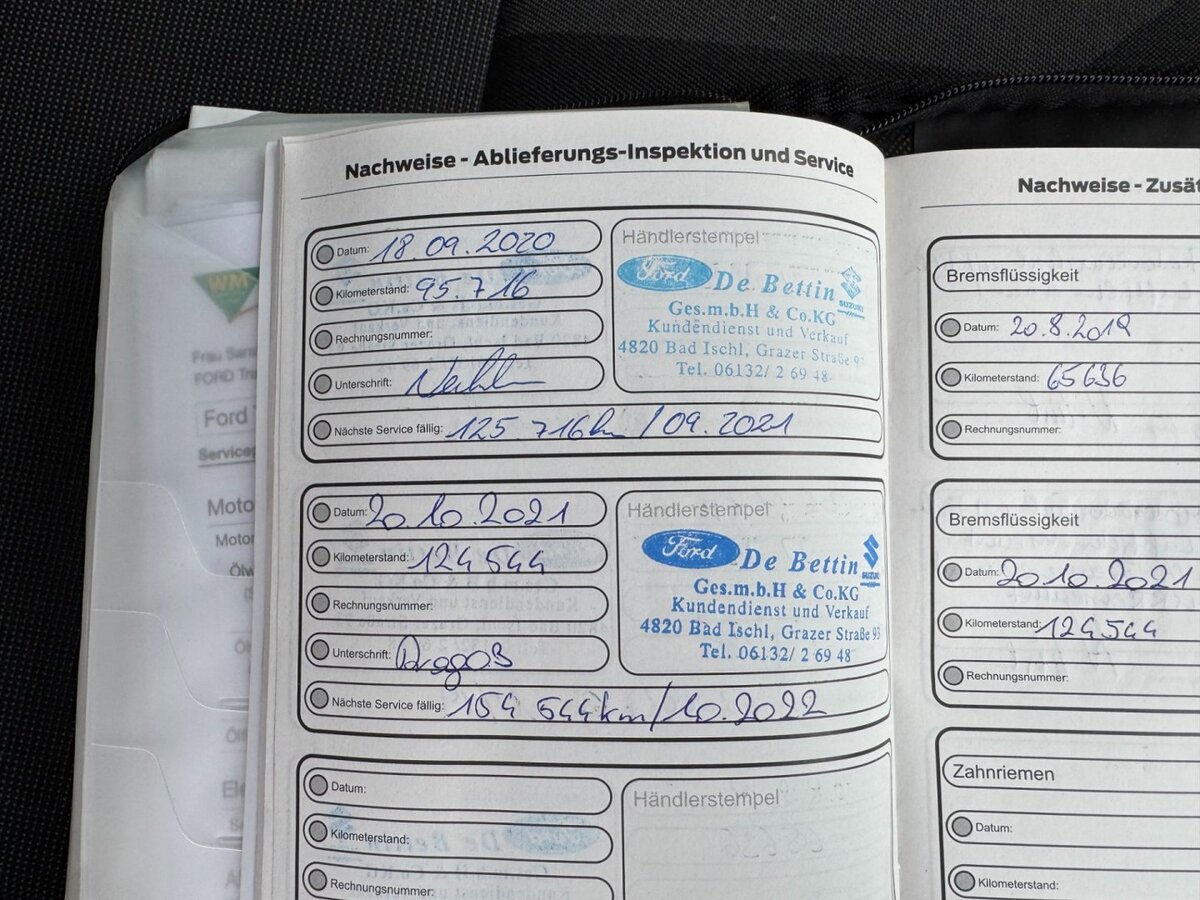 Nachweise - Ablieferungs-Inspektion und Service
Datum: 18.09.2020
Kilometerstand: 95.716
Rechnungsnummer:
Unterschrift:
Nächste Service fällig: 125.716km/09.2021
Händlerstempel
Ford De Bettin SUZUKI
Ges.m.b.H & Co.KG
Kundendienst und Verkauf
4820 Bad Ischl, Grazer Straße 93
Tel. 06132/ 2 69 48
Datum: 20.10.2021
Kilometerstand: 124544
Rechnungsnummer:
Unterschrift: Dragoß
Nächste Service fällig: 154 544km/10.2022
Händlerstempel
Ford De Bettin SUZUKI
Ges.m.b.H & Co.KG
Kundendienst und Verkauf
4820 Bad Ischl, Grazer Straße 93
Tel. 06132/ 2 69 48
Datum:
Kilometerstand:
Rechnungsnummer:
Händlerstempel
Nachweise - Zusät
Bremsflüssigkeit
Datum: 20.8.2019
Kilometerstand: 65636
Rechnungsnummer:
Bremsflüssigkeit
Datum: 20.10.2021
Kilometerstand: 124544
Rechnungsnummer:
Zahnriemen
Datum:
Kilometerstand:
WM
Frau
FORD
Ford
Moto